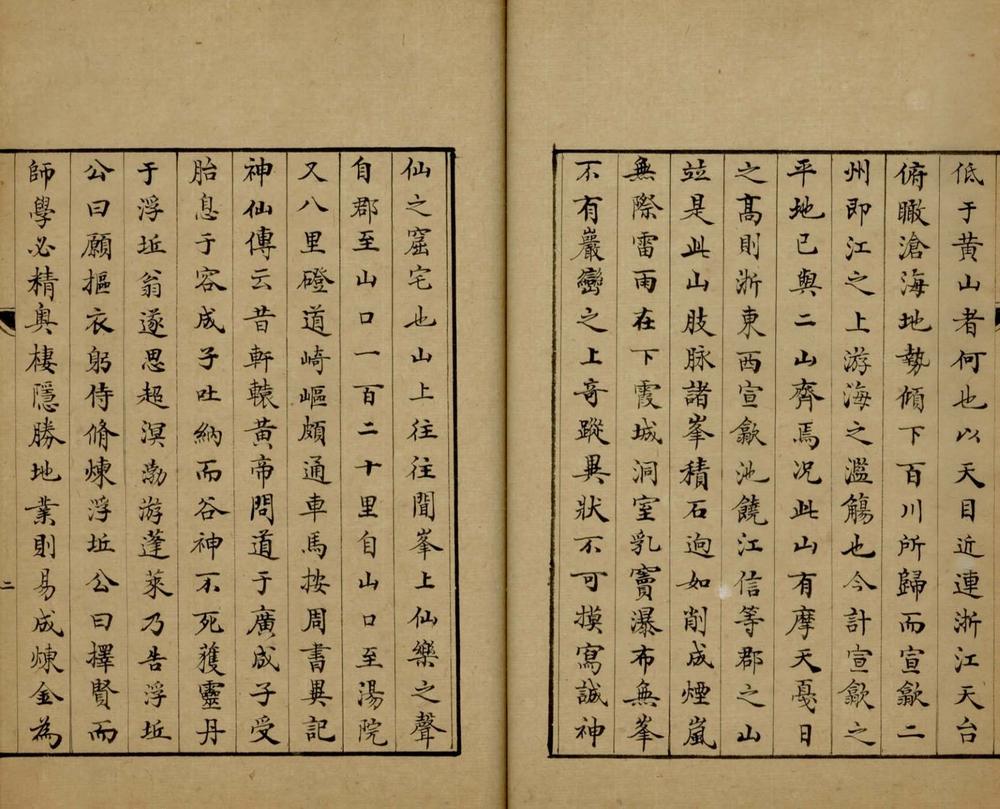 低于黄山者何也以天目近連浙江天台
俯瞰滄海地勢傾下百川所歸而宣歙二
州即江之上游海之濫觴也今計宣歙之
平地已與二山齊焉况此山有摩天戛日
之髙則浙東西宣歙池饒江信等郡之山
竝是此山肢脉諸峯積石逈如削成煙嵐
無際雷雨在下霞城洞室乳竇瀑布無峯
不有巖巒之上竒蹤異狀不可摸寫誠神
仙之窟宅也山上往往聞峯上仙樂之聲
自郡至山口一百二十里自山口至湯院
又八里磴道崎嶇頗通車馬按周書異記
神仙傳云昔軒轅黄帝問道于廣成子受
胎息于容成子吐納而谷神不死獲靈丹
于浮坵翁遂思超溟渤游蓬萊乃告浮坵
公曰願摳衣躬侍脩煉浮坵公曰擇賢而
師學必精奥棲隱勝地業則易成煉金為
二